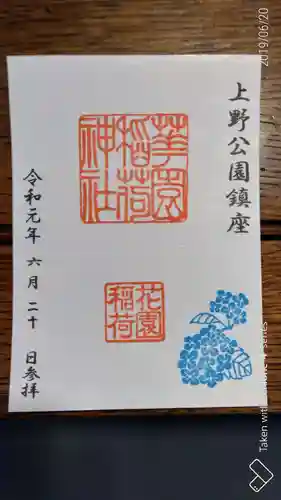 上野公園鎮座
華園
稲荷
神社
花園
稲荷
令和元年 六月 二十 日参拝
2019/06/20
Taken with
series